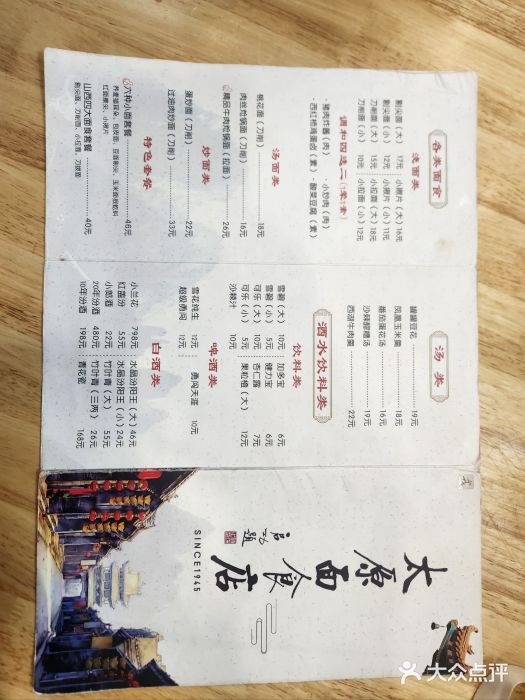 各类面食
浇面类
剔尖面（大） 17元 小揪片（大）16元
剔尖面（小） 12元 小揪片（小）11元
刀削面（大） 15元 小拉面（大）18元
刀削面（小） 10元 小拉面（小）12元
调和四选二（1荤1素）
猪肉炸酱（肉） 小炒肉（肉）
西红柿鸡蛋卤（素） 酸菜豆腐（素）
汤面类
桃花面（刀削） 18元
肉丝炝锅面（刀削） 16元
精品牛肉炝锅面（拉面） 26元
炒面类
蛋炒面（刀削） 22元
过油肉炒面（刀削） 33元
特色套餐
六种小面套餐 46元
山西四大面食套餐 40元
剔尖面、刀削面、小拉面、刀拨面
汤类
罐罐豆花 19元
凤凰玉米羹 18元
番茄蛋花汤 16元
沙棘醪糟汤 19元
西湖牛肉羹 22元
酒水饮料类
饮料类
雪碧（大） 10元 加多宝 6元
雪碧（小） 5元 健力宝 6元
可乐（大） 10元 杏仁露 7元
可乐（小） 5元 果粒橙（大） 12元
沙棘汁 10元
啤酒类
雪花纯生 12元 勇闯天涯 10元
超级勇闯 12元
白酒类
小兰花 798元 水晶汾阳王（大）46元
红盖汾 55元 水晶汾阳王（小）24元
小郎酒 22元 竹叶青（大） 55元
20年汾酒 480元 竹叶青（三两） 26元
10年汾酒 198元 青花瓷 168元
太原面食店
SINCE1945
大众点评